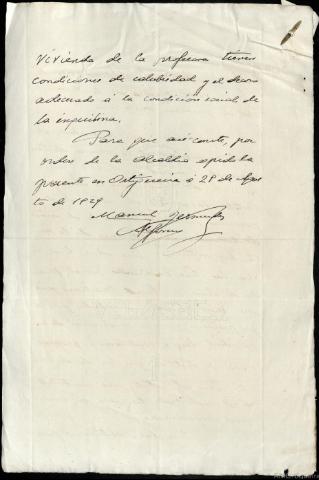 vivienda de la profesora tienen
condiciones de salubridad y el decoro
adecuado á la condición social de
la inquilina.
Para que así conste, por
orden de la Alcaldía expido la
presente en Ortigueira á 28 de Agos
to de 1929
Manuel